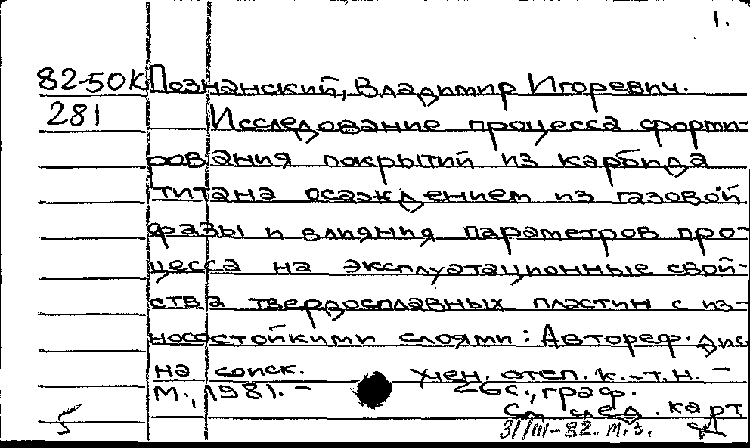 1.
82-50К Познанский, Владимир Игоревич.
281 Исследование процесса форми-
рования покрытий из карбида
титана осаждением из газовой
фазы и влияния параметров про-
цесса на эксплуатационные свой-
ства твердосплавных пластин с из-
носостойкими слоями: Автореф. дис
на соиск. учен. степ. к. т. н. –
М., 1981. – 26с., граф.
См. след. карт
5 31/III-82. М.З.